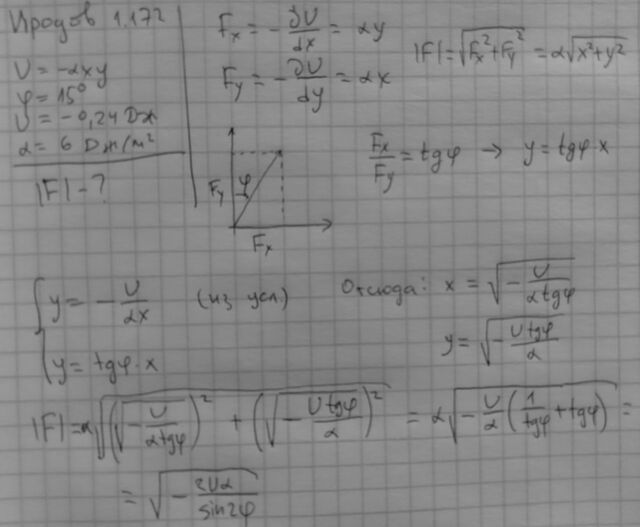 Иродов 1.172
U = -αxy
φ = 15°
U = -0,24 Дж
α = 6 Дж/м²
|F| - ?
Fx = -∂U/∂x = αy
Fy = -∂U/∂y = αx
|F| = √(Fx² + Fy²) = α√(x² + y²)
Fy φ
Fx
Fx/Fy = tgφ → y = tgφ·x
{ y = -U/αx (из усл)
{ y = tgφ·x
Отсюда: x = √(-U/αtgφ)
y = √(-Utgφ/α)
|F| = α√((√(-U/αtgφ))² + (√(-Utgφ/α))²) = α√(-U/α(1/tgφ + tgφ)) =
= √(-2Uα/sin2φ)